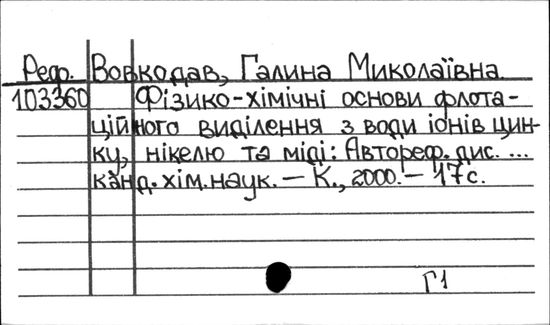 Реф. Вовкодав, Галина Миколаївна
103360 Фізико-хімічні основи флота-
ційного виділення з води іонів цин-
ку, нікелю та міді: Автореф. дис. ...
канд. хім. наук. — К., 2000. — 17 с.
Г1